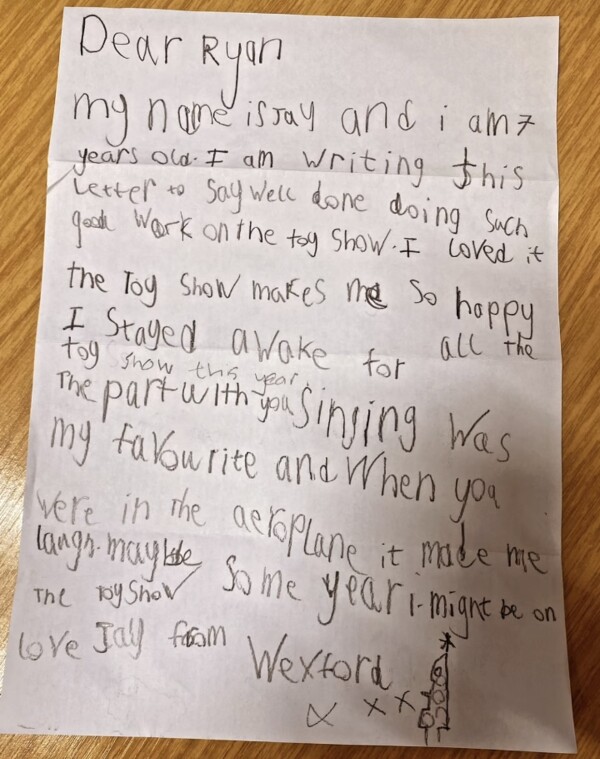 Dear Ryan
my name is Jay and i am 7
years old. I am writing this
Letter to say well done doing such
good work on the toy show. I loved it
the Toy show makes me so happy
I stayed awake for all the
toy show this year.
The part with you Singing was
my favourite and when you
were in the aeroplane it made me
laugh. maybe some year i might be on
The Toy Show
love Jay from
Wexford
x x x